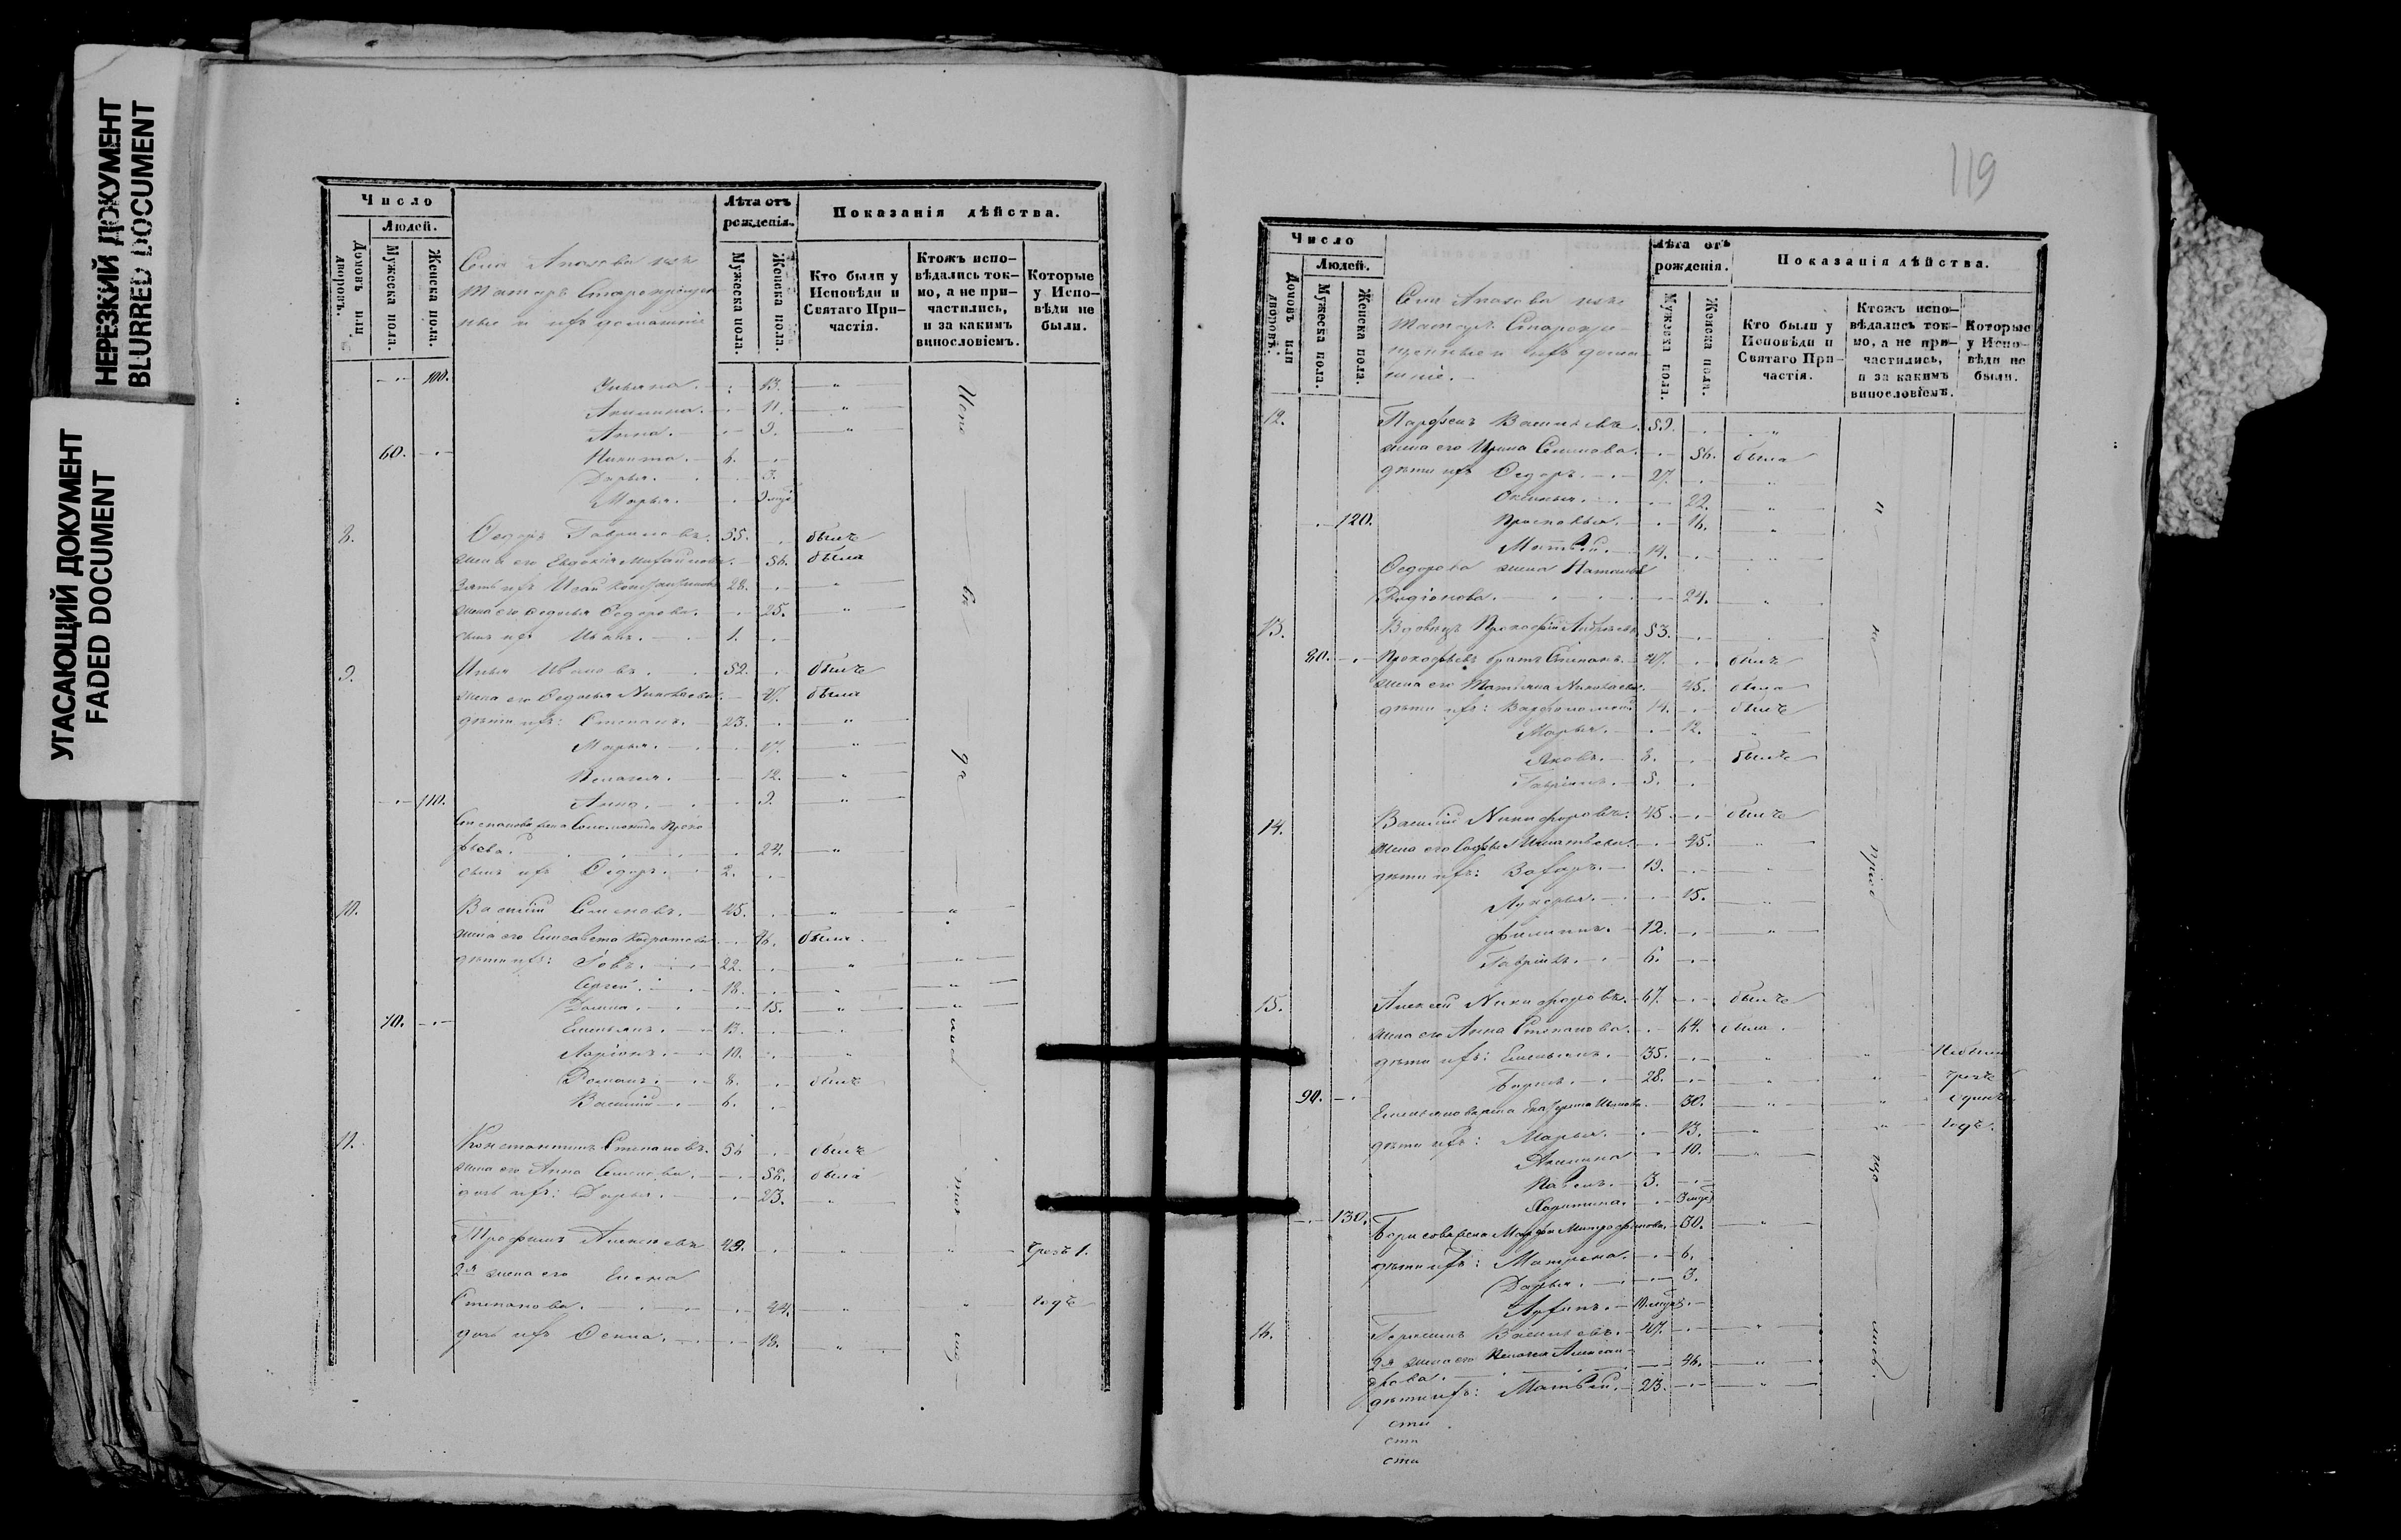 НЕРЕЗКИЙ ДОКУМЕНТ
BLURRED DOCUMENT
УГАСАЮЩИЙ ДОКУМЕНТ
FADED DOCUMENT
Число
Людей.
Домовъ или дворовъ.
Мужеска пола.
Женска пола.
Села Апазова изъ
татаръ Старокрещен
ные и ихъ домашніе
Лѣта отъ рожденія.
Мужеска пола.
Женска пола.
Показанія дѣйства.
Кто были у Исповѣди и Святаго Причастія.
Ктожъ исповѣдались токмо, а не причастились, и за какимъ винословіемъ.
Которые у Исповѣди не были.
100. 13. "
Акилина. 11. "
Анна. 9. "
60. Никита. 6.
Дарья. 3.
Марья.
8. Ѳедоръ Гавриловъ. 55. былъ
жена его Евдокія 56. была
зять ихъ 28. "
жена его Ѳедосья Ѳедорова. 25. "
сынъ ихъ Иванъ. 1.
9. Илья Ивановъ. 52. былъ
жена его Ѳедосья Николаева. 47. была
дѣти ихъ: Степанъ. 23. "
Марья. 17. "
Пелагея. 12. "
110. Анна. 9. "
Степанова жена Соломонида Проко
фьева. 24. "
сынъ ихъ Ѳедоръ. 2.
10. Василій Семеновъ. 45. " "
жена его Елисавета 46. была
дѣти ихъ: Іовъ. 22. " "
Сергей. 18. " "
15. " "
70. Емельянъ. 13. "
Ларіонъ. 10. "
Романъ. 8. былъ
Василій 6.
11. Константинъ Степановъ. 56 былъ
жена его Анна Семенова. 52. была
дочь ихъ: Дарья. 23. "
Трофимъ Алексѣевъ 49. " " чрезъ 1.
2я жена его Елена
Степанова. 44. " " годъ
дочь ихъ 18. "
119
Число
Людей.
Домовъ или дворовъ.
Мужеска пола.
Женска пола.
Села Апазова изъ
татаръ Старокре-
щенные и ихъ дома
шніе.
Лѣта отъ рожденія.
Мужеска пола.
Женска пола.
Показанія дѣйства.
Кто были у Исповѣди и Святаго Причастія.
Ктожъ исповѣдались токмо, а не причастились, и за какимъ винословіемъ.
Которые у Исповѣди не были.
12. Парфенъ Васильевъ. 59. "
жена его Ирина Семенова. 56. была
дѣти ихъ Ѳедоръ. 27. "
22. "
120. Прасковья. 16. "
Матвѣй. 14. "
Ѳедорова жена Наталья
Родіонова. 24. "
13. Вдовецъ Прокофій Андреевъ 53.
80. Прокофьевъ братъ Степанъ. 47. былъ
жена его Татьяна Николаева. 45. была
дѣти ихъ: Варфоломей 14. былъ
Марья. 12. "
Яковъ. 8. былъ
Гавріилъ. 5.
14. Василій Никифоровъ. 45. былъ
жена его Софья Игнатьева. 45. "
дѣти ихъ: Захаръ. 19. "
Лукерья. 15. "
Филиппъ. 12. "
Гавріилъ. 6.
15. Алексѣй Никифоровъ. 67. былъ
жена его Анна Степанова. 64. была.
дѣти ихъ: Емельянъ. 35. " " Небыли
Борисъ. 28. " " чрезъ
90. Емельянова жена Екатерина Иванова. 30. " " одинъ
дѣти ихъ: Марья. 13. " " годъ.
Акилина 10. "
Павелъ. 3.
Харитина. 3 мѣс
130. Борисова жена Марфа Митрофанова. 30. "
дѣти ихъ: Матрена. 6.
Дарья. 3.
16. Герасимъ Васильевъ. 47. "
2я жена его Пелагея Алексан-
дрова. 46. "
дѣти ихъ: Матвѣй. 23. "
сти
сти
сти